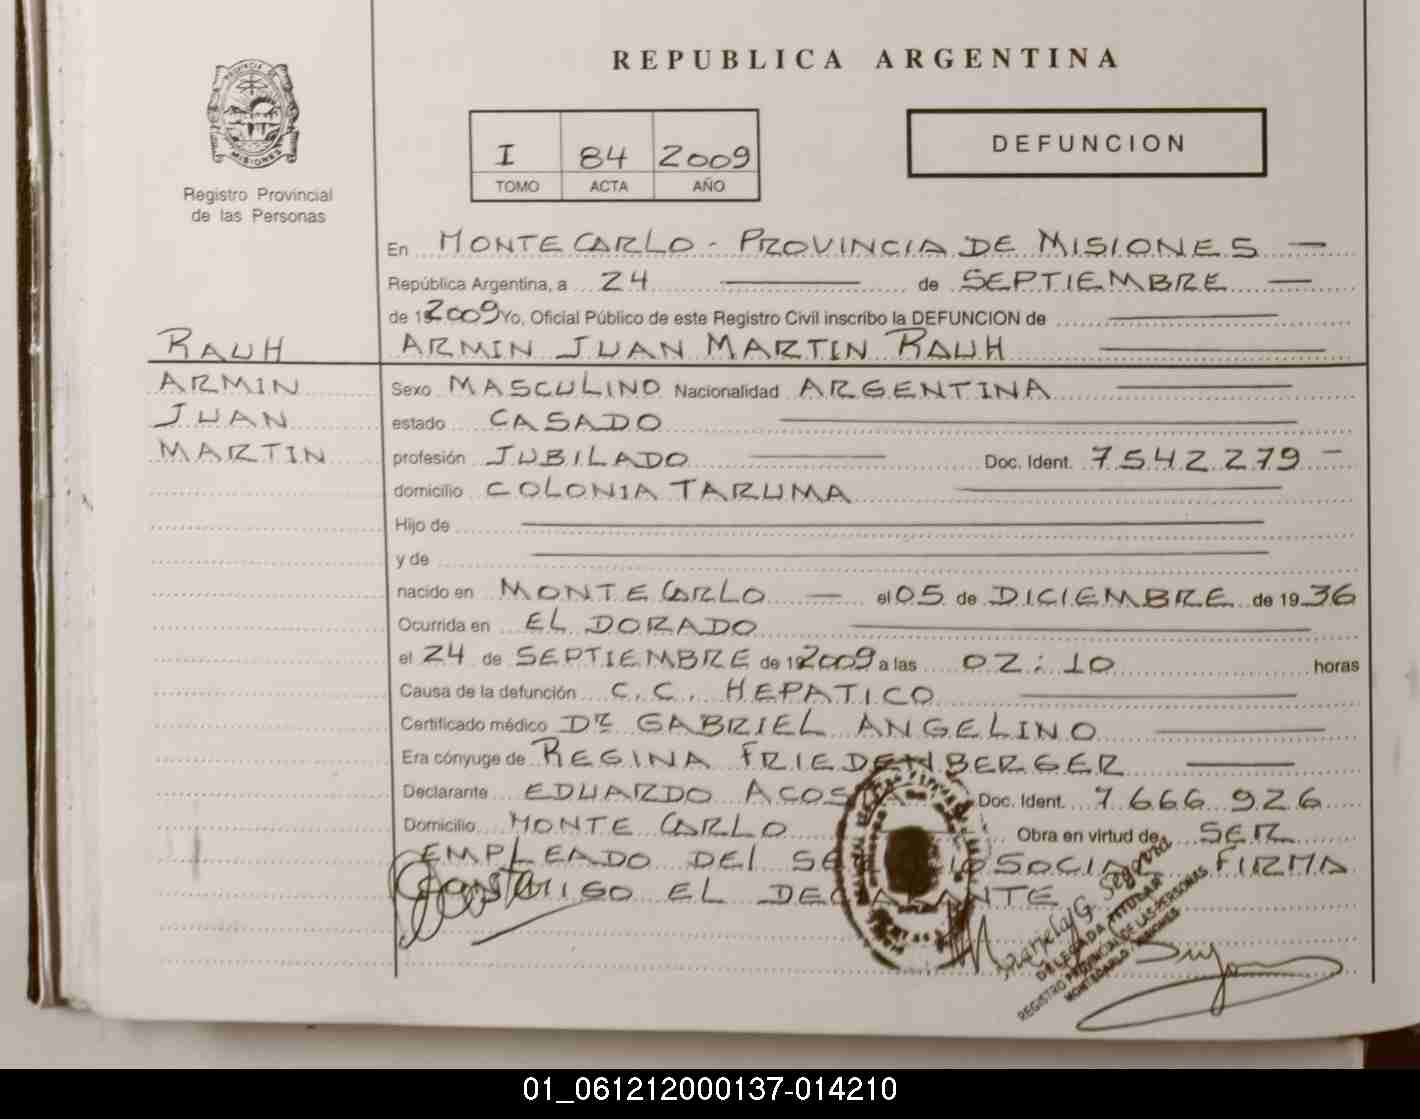 REPUBLICA ARGENTINA
PROVINCIA DE
MISIONES
Registro Provincial
de las Personas
I 84 2009
TOMO ACTA AÑO
DEFUNCION
En MONTECARLO - PROVINCIA DE MISIONES —
República Argentina, a 24 — de SEPTIEMBRE —
de 192009 Yo, Oficial Público de este Registro Civil inscribo la DEFUNCION de —
RAUH ARMIN JUAN MARTIN RAUH —
ARMIN Sexo MASCULINO Nacionalidad ARGENTINA —
JUAN estado CASADO —
MARTIN profesión JUBILADO — Doc. Ident. 7542279 —
domicilio COLONIA TARUMA —
Hijo de —
y de —
nacido en MONTECARLO — el 05 de DICIEMBRE de 1936
Ocurrida en EL DORADO —
el 24 de SEPTIEMBRE de 192009 a las 02:10 horas
Causa de la defunción C.C. HEPATICO —
Certificado médico Dr. GABRIEL ANGELINO —
Era cónyuge de REGINA FRIEDENBERGER —
Declarante EDUARDO ACOSTA Doc. Ident. 7666926
Domicilio MONTE CARLO Obra en virtud de SER
EMPLEADO DEL SOCIAL FIRMA
CONMIGO EL DECLARANTE
DELEGADA TITULAR
REGISTRO PROVINCIAL DE LAS PERSONAS
MONTECARLO - MISIONES
01_061212000137-014210